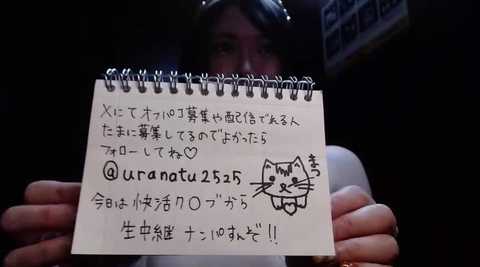 Xにてオフパコ募集や配信でれる人
たまに募集してるのでよかったら
フォローしてね♡
@uranatu2525
まつ
今日は快活ク〇ブから
生中継 ナンパすんぞ!!